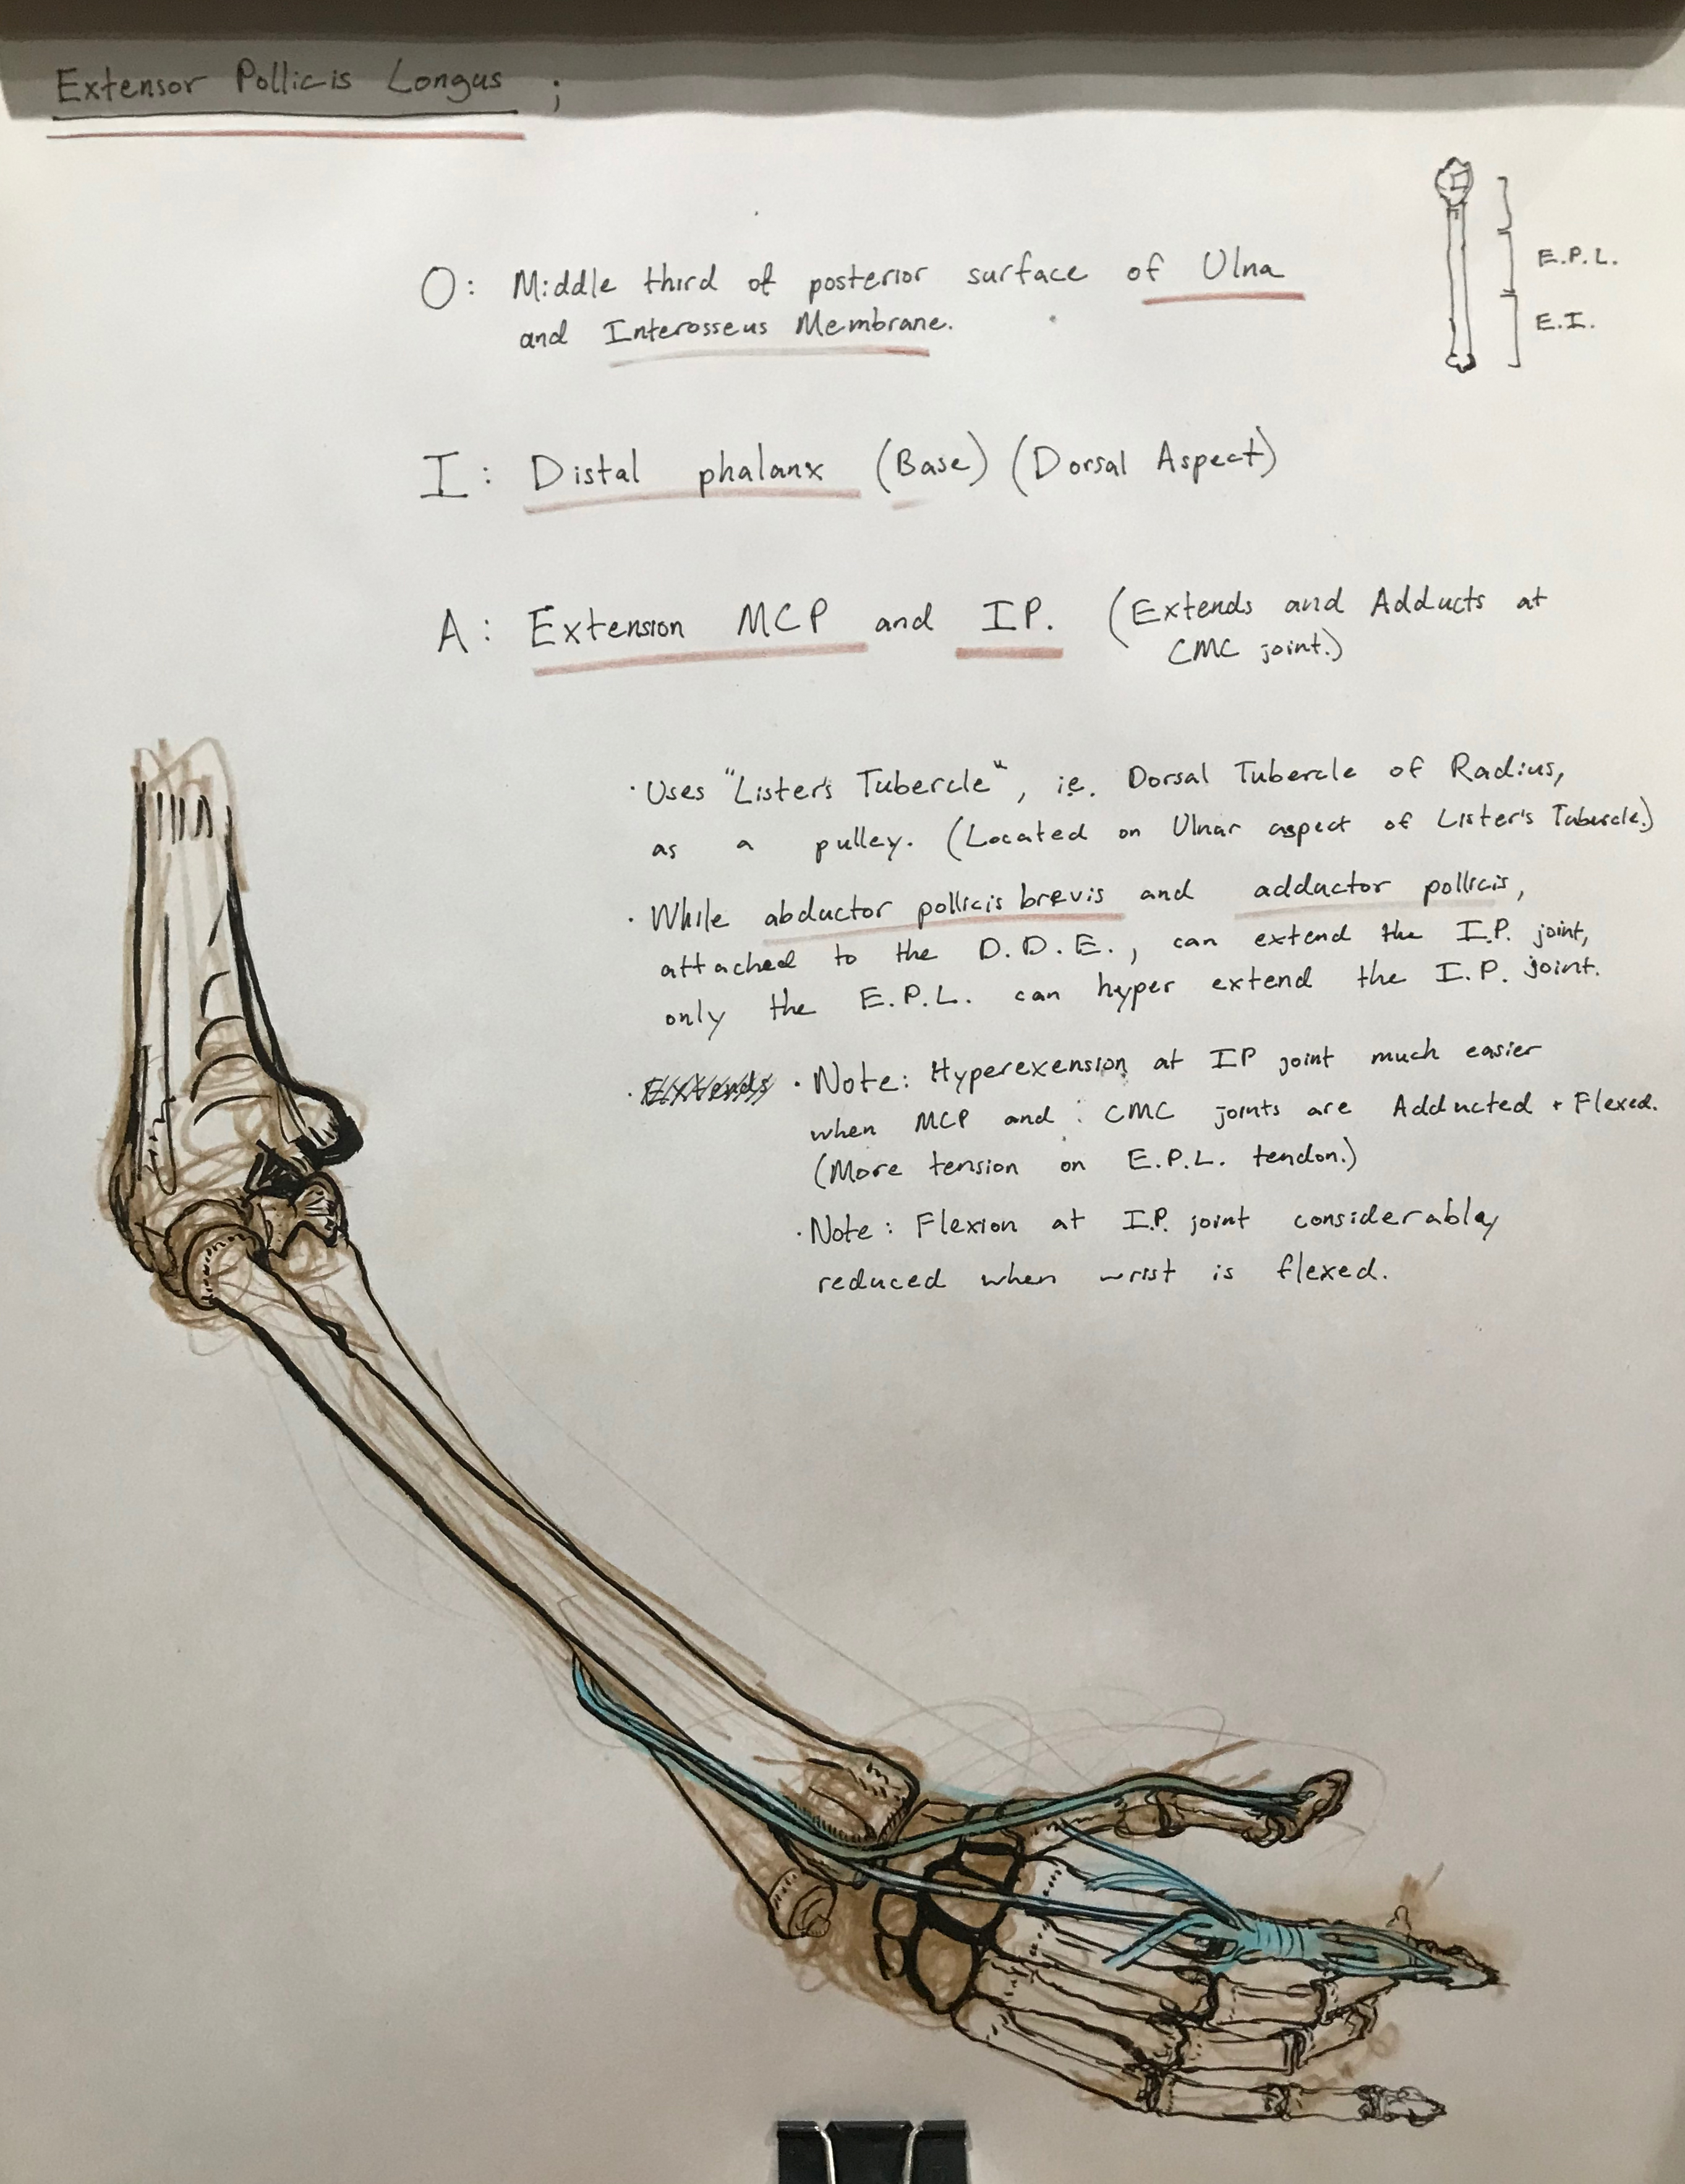 Extensor Pollicis Longus ;
O: Middle third of posterior surface of Ulna
and Interosseus Membrane.
E.P.L.
E.I.
I: Distal phalanx (Base) (Dorsal Aspect)
A: Extension MCP and IP. (Extends and Adducts at
CMC joint.)
· Uses "Lister's Tubercle", ie. Dorsal Tubercle of Radius,
as a pulley. (Located on Ulnar aspect of Lister's Tubercle.)
· While abductor pollicis brevis and adductor pollicis,
attached to the D.D.E., can extend the I.P. joint,
only the E.P.L. can hyper extend the I.P. joint.
· Extends · Note: Hyperexension at IP joint much easier
when MCP and CMC joints are Adducted + Flexed.
(More tension on E.P.L. tendon.)
· Note: Flexion at I.P. joint considerably
reduced when wrist is flexed.